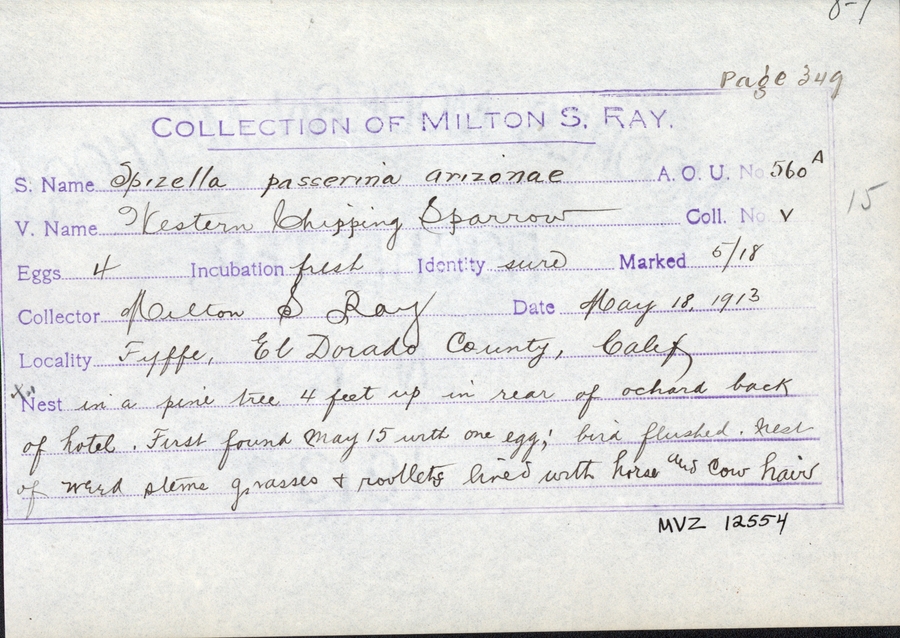 Page 349
COLLECTION OF MILTON S. RAY.
S. Name Spizella passerina arizonae A. O. U. No 560 A
15
V. Name Western Chipping Sparrow Coll. No V
Eggs 4 Incubation fresh Identity sure Marked 5/18
Collector Milton S Ray Date May 18, 1913
Locality Fyffe, El Dorado County, Calif
Nest in a pine tree 4 feet up in rear of ochard back
of hotel. First found May 15 with one egg; bird flushed. Nest
of weed stems grasses & rootlets lined with horse and cow hair
MVZ 12554